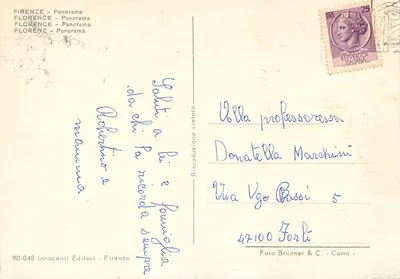 FIRENZE - Panorama
FLORENCE - Panorama
FLORENCE - Panorama
FLORENZ - Panorama
LIRE 25
Saluti a lei e famiglia
da chi la ricorda sempre
Robertino e
mamma
Riproduzione vietata
Alla professoressa
Donatella Marchini
Via Ugo Bassi 5
47100 Forlì
90-048 Innocenti Editori - Firenze
Foto Brunner & C. - Como -